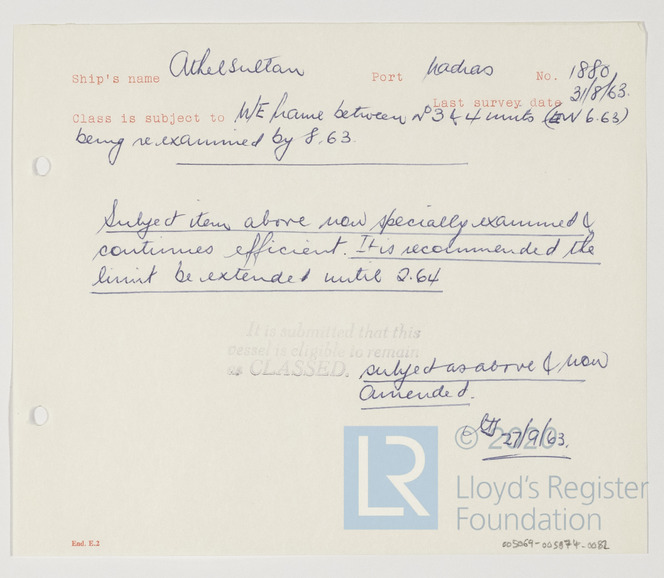 Ship's name Athelsultan Port Madras No. 1880
Last survey date 31/8/63.
Class is subject to WE frame between No 3 & 4 units (LW 6.63)
being re-examined by 8.63.
Subject item above now specially examined &
continues efficient. It is recommended the
limit be extended until 2.64
It is submitted that this
vessel is eligible to remain
as CLASSED.
subject as above & now
amended.
27/9/63.
© 2020
LR
Lloyd's Register
Foundation
End. E.2
005069-005074-0082